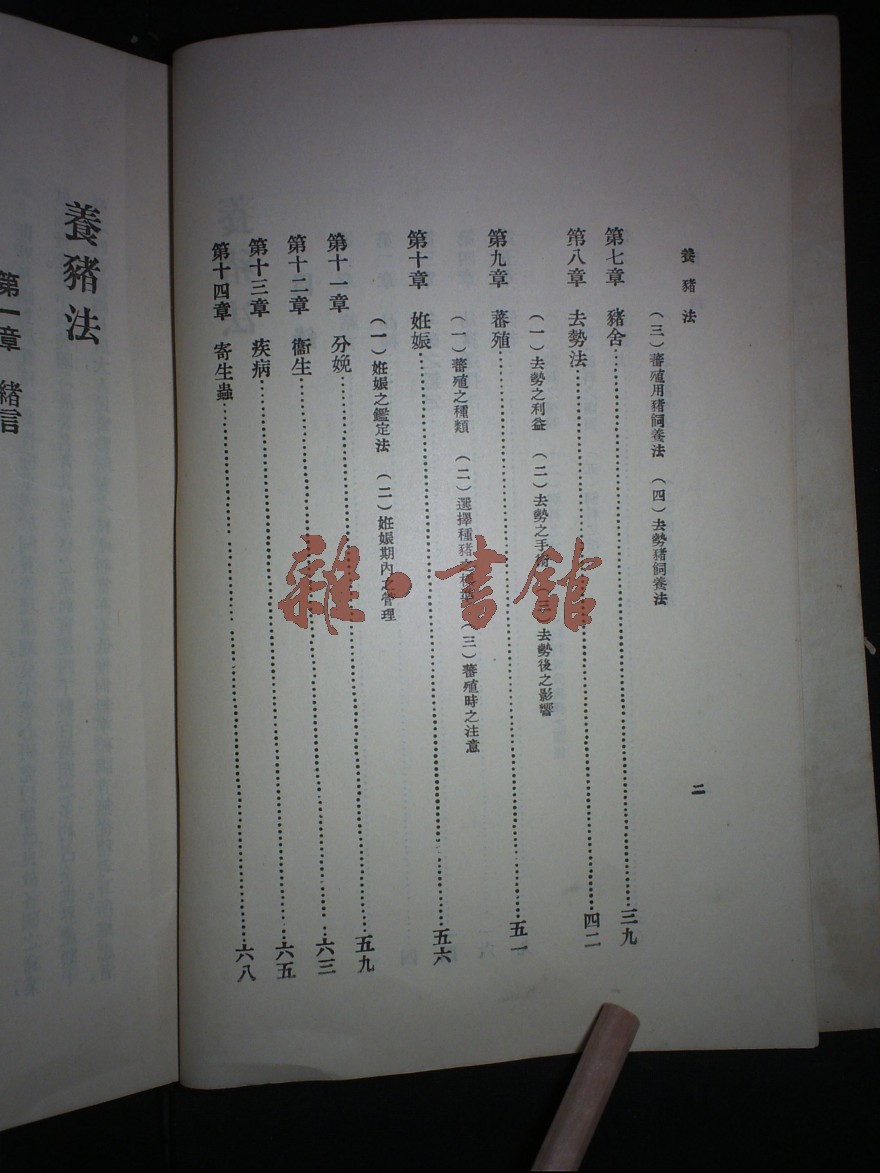 養豬法
(三)蕃殖用豬飼養法 (四)去勢豬飼養法
第七章 豬舍……三九
第八章 去勢法……四二
(一)去勢之利益 (二)去勢之手術 (三)去勢後之影響
第九章 蕃殖……五一
(一)蕃殖之種類 (二)選擇種豬 (三)蕃殖時之注意
第十章 妊娠……五六
(一)妊娠之鑑定法 (二)妊娠期內之管理
第十一章 分娩……五九
第十二章 衞生……六三
第十三章 疾病……六五
第十四章 寄生蟲……六八
二
養豬法
第一章 緒言
雜·書館